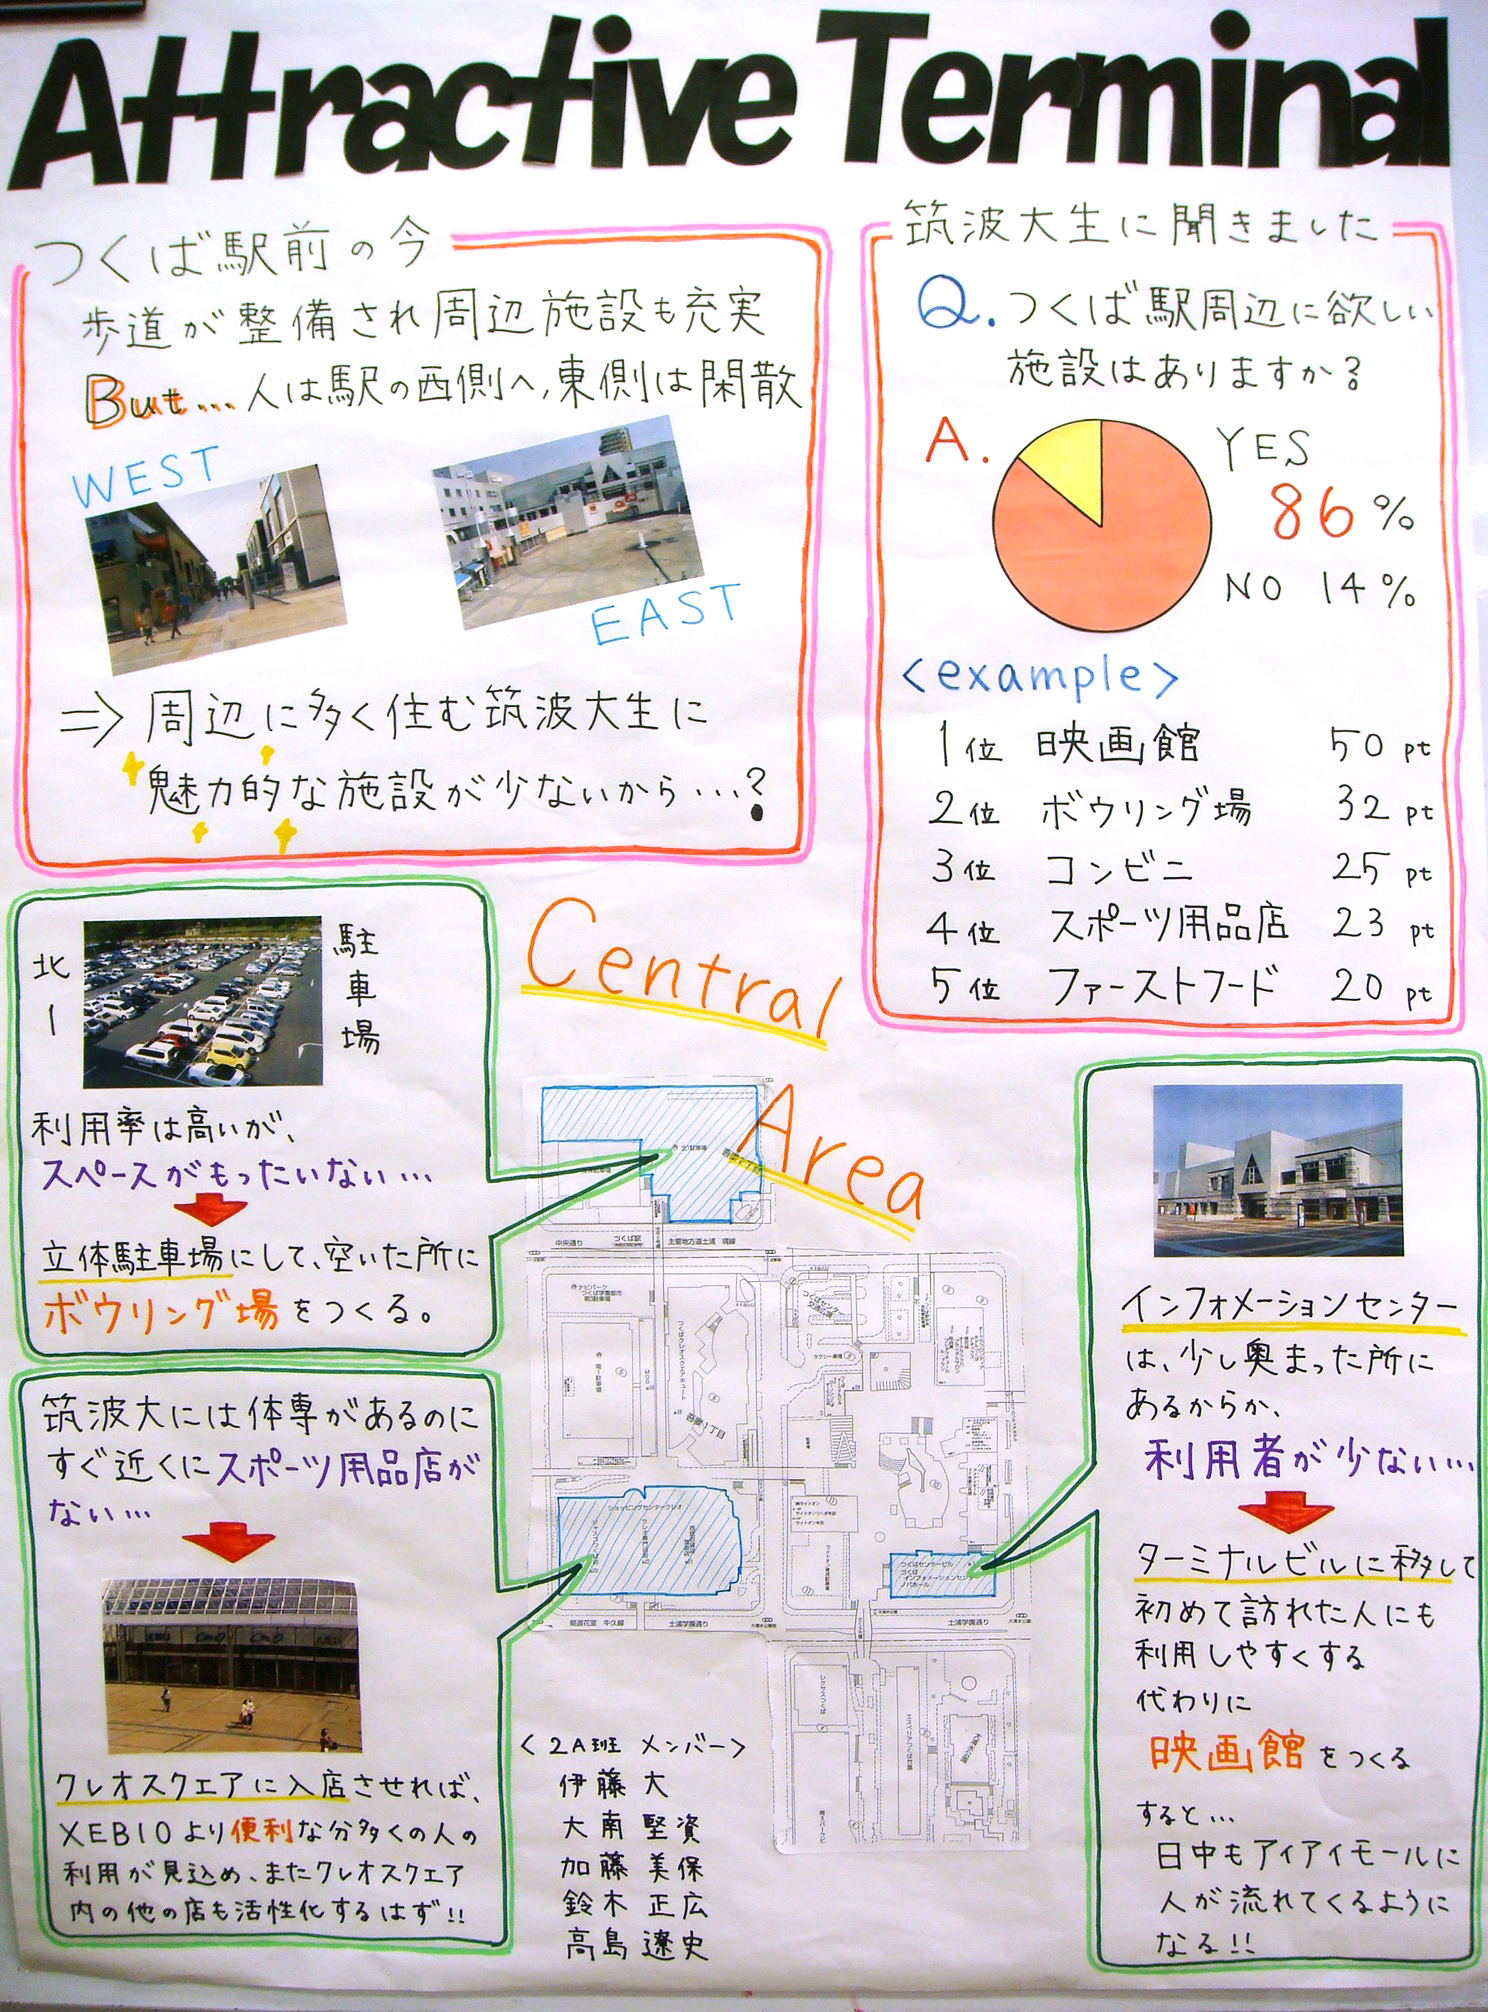 Attractive Terminal
つくば駅前の今
歩道が整備され周辺施設も充実
But… 人は駅の西側へ,東側は閑散
WEST
EAST
⇒ 周辺に多く住む筑波大生に
魅力的な施設が少ないから…?
筑波大生に聞きました
Q. つくば駅周辺に欲しい
施設はありますか?
A.
YES
86 %
NO 14%
<example>
1位 映画館 50 pt
2位 ボウリング場 32 pt
3位 コンビニ 25 pt
4位 スポーツ用品店 23 pt
5位 ファーストフード 20 pt
Central
Area
北1
駐車場
利用率は高いが、
スペースがもったいない…
立体駐車場にして、空いた所に
ボウリング場をつくる。
筑波大には体専があるのに
すぐ近くにスポーツ用品店が
ない…
クレオスクエアに入店させれば、
XEBIOより便利な分多くの人の
利用が見込め、またクレオスクエア
内の他の店も活性化するはず!!
インフォメーションセンター
は、少し奥まった所に
あるからか、
利用者が少ない…
ターミナルビルに移して
初めて訪れた人にも
利用しやすくする
代わりに
映画館をつくる
すると…
日中もアイアイモールに
人が流れてくるように
なる!!
中央通り
つくば駅
主要地方道土浦 境線
ショッピングセンタークレオ
つくばセンタービル
土浦学園通り
土浦学園通り
<2A班 メンバー>
伊藤 大
大南 堅資
加藤 美保
鈴木 正広
高島 遼史